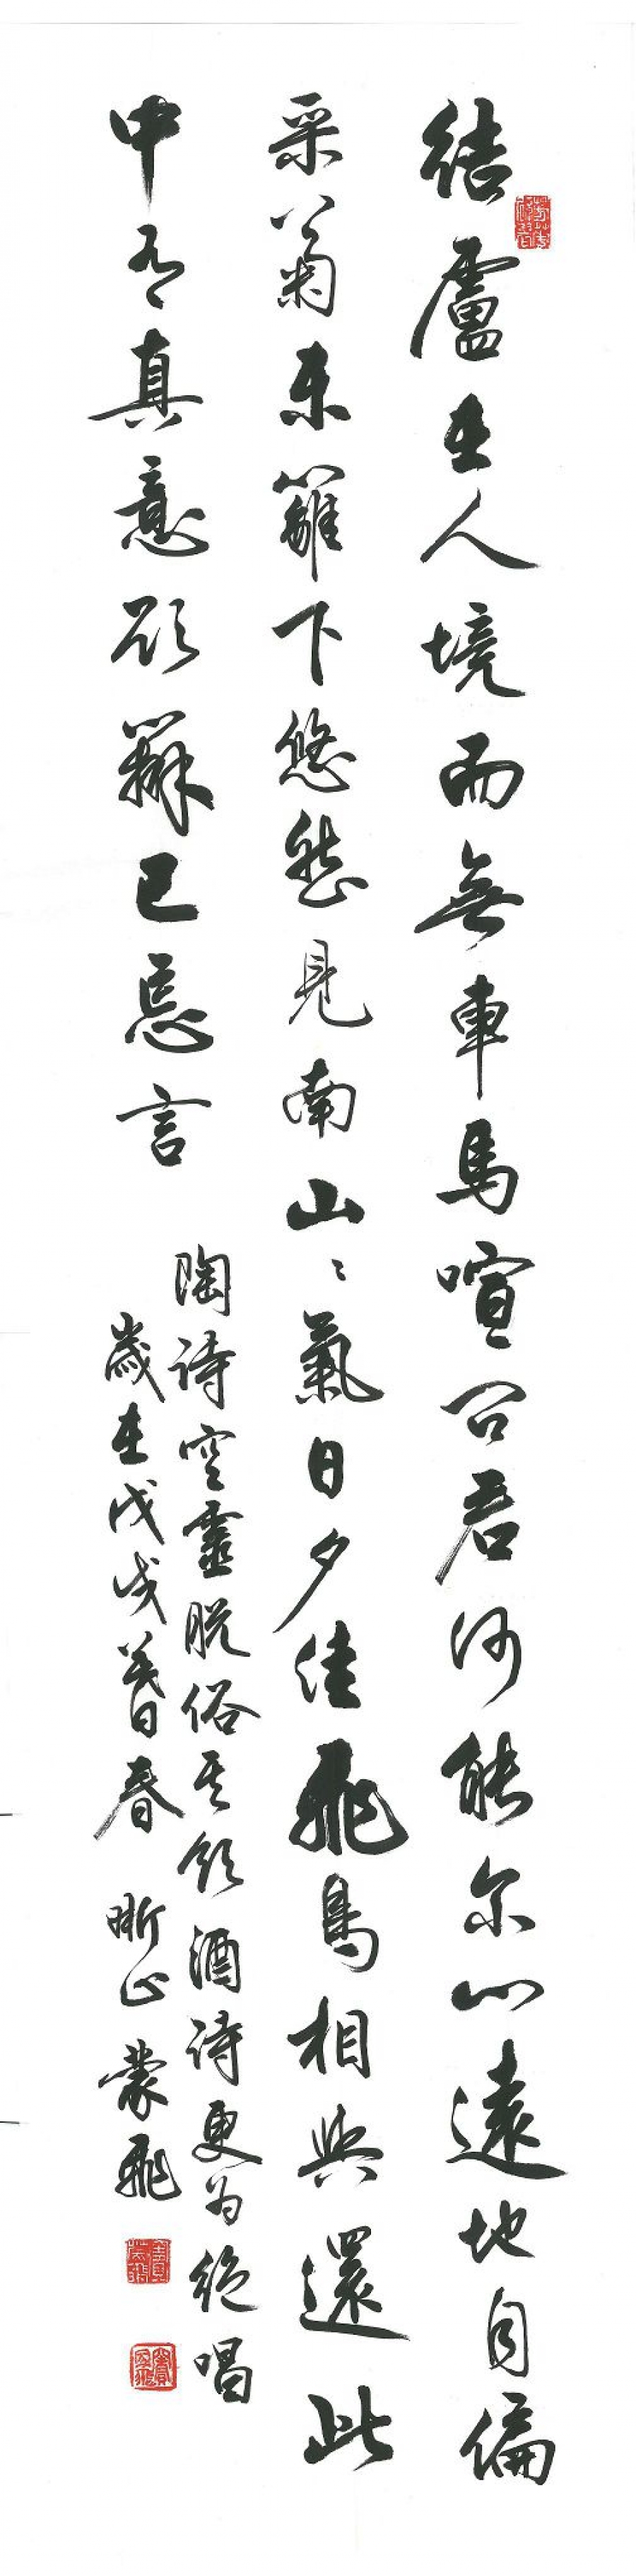 結廬在人境而無車馬喧问君何能尔心遠地自偏
采菊東籬下悠然見南山〻氣日夕佳飛鳥相與還此
中有真意欲辨已忘言
陶詩空靈脫俗其飲酒詩更为絕唱
歲在戊戌暮春 蒙飛